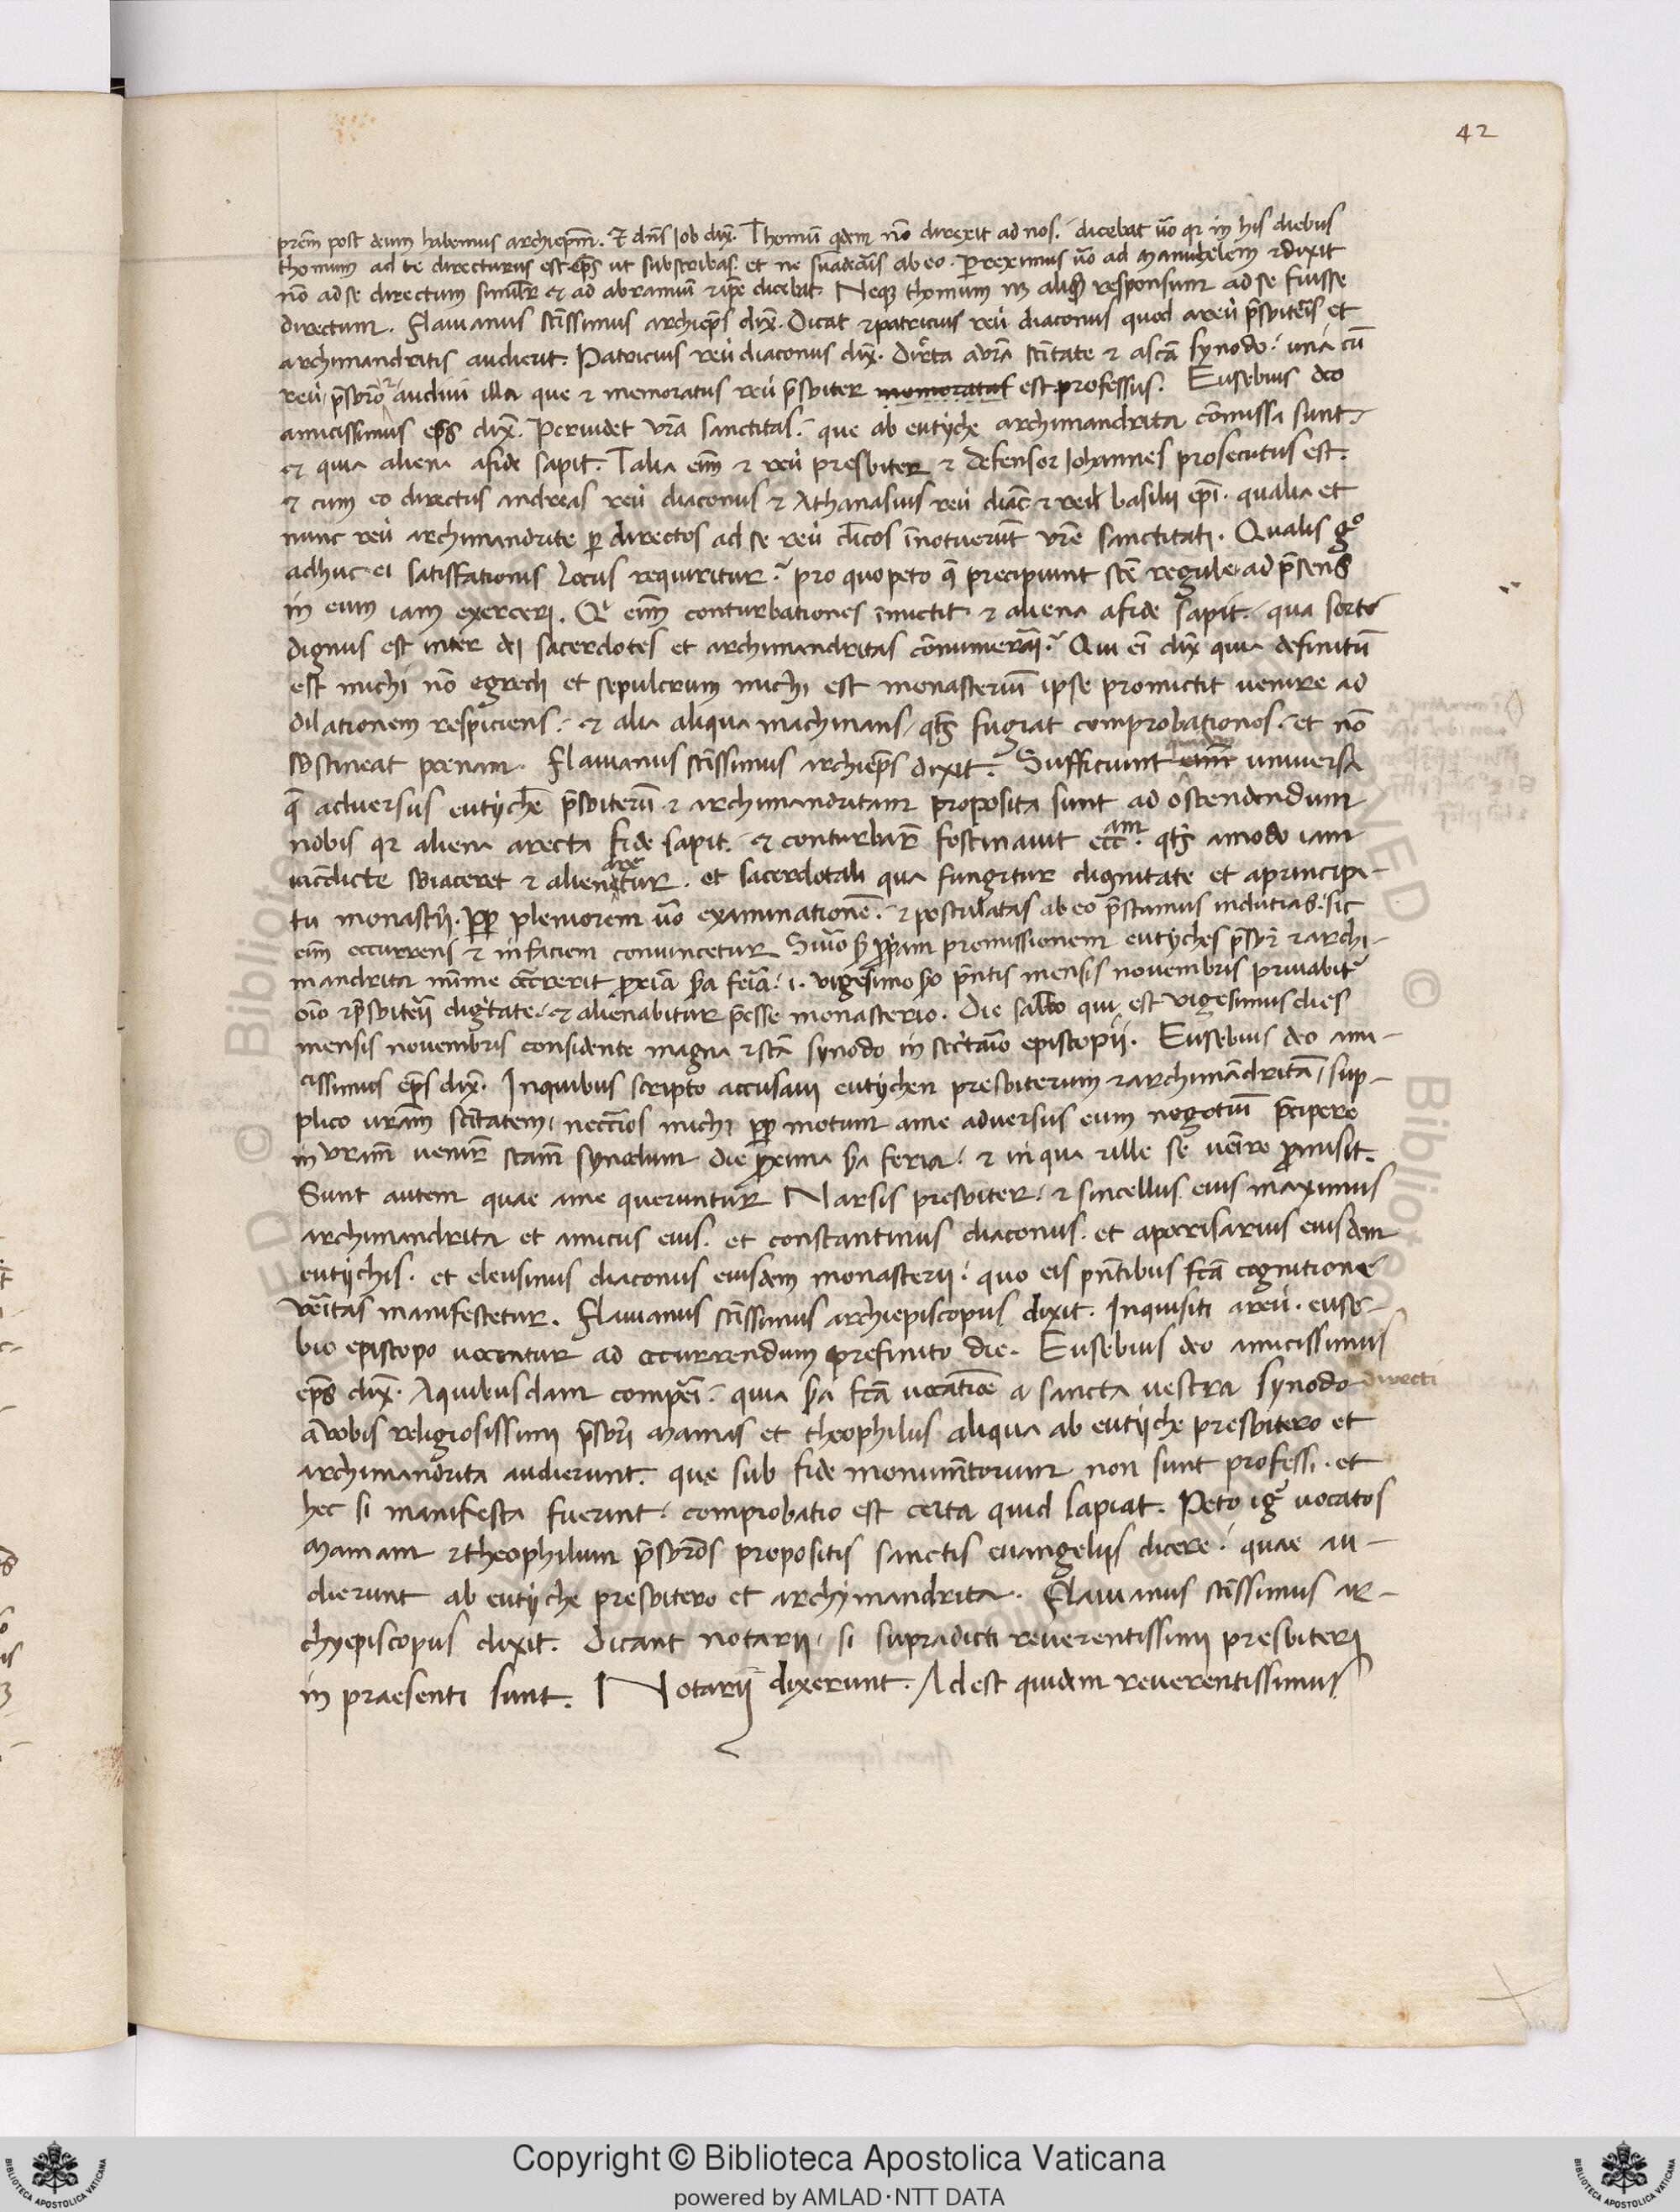 42
prem̄ post deum habemus archiep̄m. Et dn̄s Iob dix̄. Thomū q̄dem nō direxit ad nos. dicebat ūo qr in his diebus
thomum ad te directurus est ep̄s ut subscribas. et ne suadearis ab eo. Perreximus ūo ad manuhelem et dixit
nō ad se directum simil̄r et ad abramiū et ip̄e dicebat. Neq3 thomum aliqd responsum ad se fuisse
directum. Flauianus sc̄issimus archiep̄s dix̄. Dicat et patricius reū diaconus quod a reū p̄sbiteris et
archimandritis audierit. Patricius reū diaconus dix̄. Dir̄ta a ūrā sc̄itate et a scā synodo. unā cū
reū p̄sb̄ro audiui illa que et memoratus reū p̄sbiter memoratus est professus. Eusebius deo
amicissimus ep̄s dix̄. Peruidet ūrā sanctitas. que ab eutyche archimandrita cōmissa sunt.
et quia aliena a fide sapit. Talia eīm et reū presbiter et defensor Iohannes prosecutus est.
et cum eo directus andreas reū diaconus et Athanasius reū diac̄ et reū basilii ep̄i. qualia et
nunc reū archimandrite p directos ad se reū cl̄icos īnotuerūt ūrē sanctitati. Qualis go
adhuc ei satisfationis locus requiritur? pro quo peto q̄ precipiunt sc̄e regule ad p̄sens
in eum iam exerceri. Qi eīm conturbationes īmictit et aliena a fide sapit. qua sorte
dignus est inter dei sacerdotes et archimandritas cōnumerari? Qui eī dix̄ quia definitū
est michi nō egredi et sepulcrum michi est monasteriū ipse promictit uenire ad
dilationem respiciens. et alia aliqua machinans. qt̄s fugiat comprobationes. et nō
sustineat poenam. Flauianus sc̄issimus archiep̄s dixit. Sufficiunt eīm uniuersa
q̄ aduersus eutychē p̄sbiterū et archimandritam proposita sunt ad ostendendum
nobis qr aliena a recta fide sapit. et conturbar̄ festinauit ecc̄am. qt̄s amodo iam
uindicte subiaceret et alienaretur. et sacerdotali qua fungitur dignitate et a principa-
tu monasterii. pp pleniorem ūo examinationē. et postulatas ab eo p̄stamus indutias. sic
eīm occurrens et in faciem conuincetur. Si ūo promissionem eutyches p̄sbr et archi-
mandrita minime occurrerit proxīa feria. i. uigesimo p̄ntis mensis nouembris priuabitr
oīo et p̄sbiterii diḡtate. et alienabitur p̄esse monasterio. Die sabbato qui est uigesimus dies
mensis nouembris considente magna et scā synodo in secr̄tario episcopii. Eusebius deo ami-
cissimus ep̄s dix̄. In quibus scripto accusaui eutychen presbiterum et archimādritā, sup-
plico ūrām sc̄itatem necc̄ios michi pp motum a me aduersus eum negotiū p̄cipere
in ūrām uenir̄ scām synodum die proxima feria. et in qua et ille se uenire promisit.
Sunt autem quae a me queruntur Narsis presbiter. et sincellus eius maximus
archimandrita et amicus eius. et constantinus diaconus. et apocrisarius eiusdem
eutychis. et eleusinus diaconus eiusdem monasterii. quo eis p̄ntibus fc̄a cognitione
ueritas manifestetur. Flauianus sc̄issimus archiepiscopus dixit. Inquisiti a reū. euse-
bio episcopo uocentur ad occurrendum prefinito die. Eusebius deo amicissimus
ep̄s dix̄. A quibusdam comperi. quia fc̄a uocatiōe a sancta uestra synodo directi
a uobis religiosissimi p̄sbri mamas et theophilus aliqua ab eutyche presbitero et
archimandrita audierunt. que sub fide monumētorum non sunt professi. et
hec si manifesta fuerint. comprobatio est certa quid sapiat. Peto igr uocatos
mamam et theophilum p̄sbr̄os propositis sanctis euangeliis dicere. quae au-
dierunt ab eutyche presbitero et archymandrita. Flauianus sc̄issimus ar-
chyepiscopus dixit. Dicant notarii si supradicti reuerentissimi presbiteri
in praesenti sunt. Notarii dixerunt. Adest quidem reuerentissimus
Copyright © Biblioteca Apostolica Vaticana
powered by AMLAD·NTT DATA